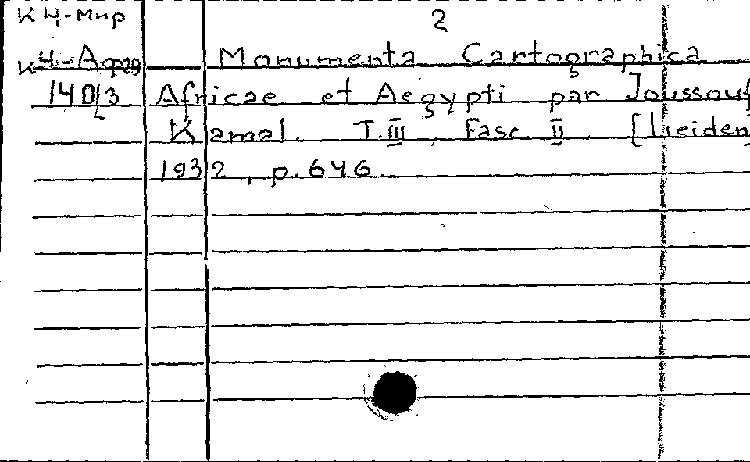 К 4-Мир
2
К4-Афр
Monumenta Cartographica
140/3 Africae et Aegypti par Joussouf
Kamal. T.III, Fasc II. [Leiden
1932, p. 646.